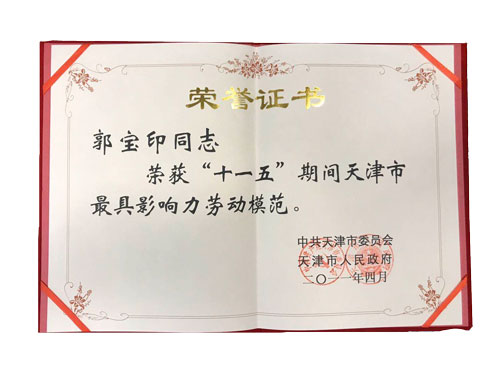 荣誉证书
郭宝印同志
荣获“十一五”期间天津市
最具影响力劳动模范。
中共天津市委员会
天津市人民政府
二〇一一年四月